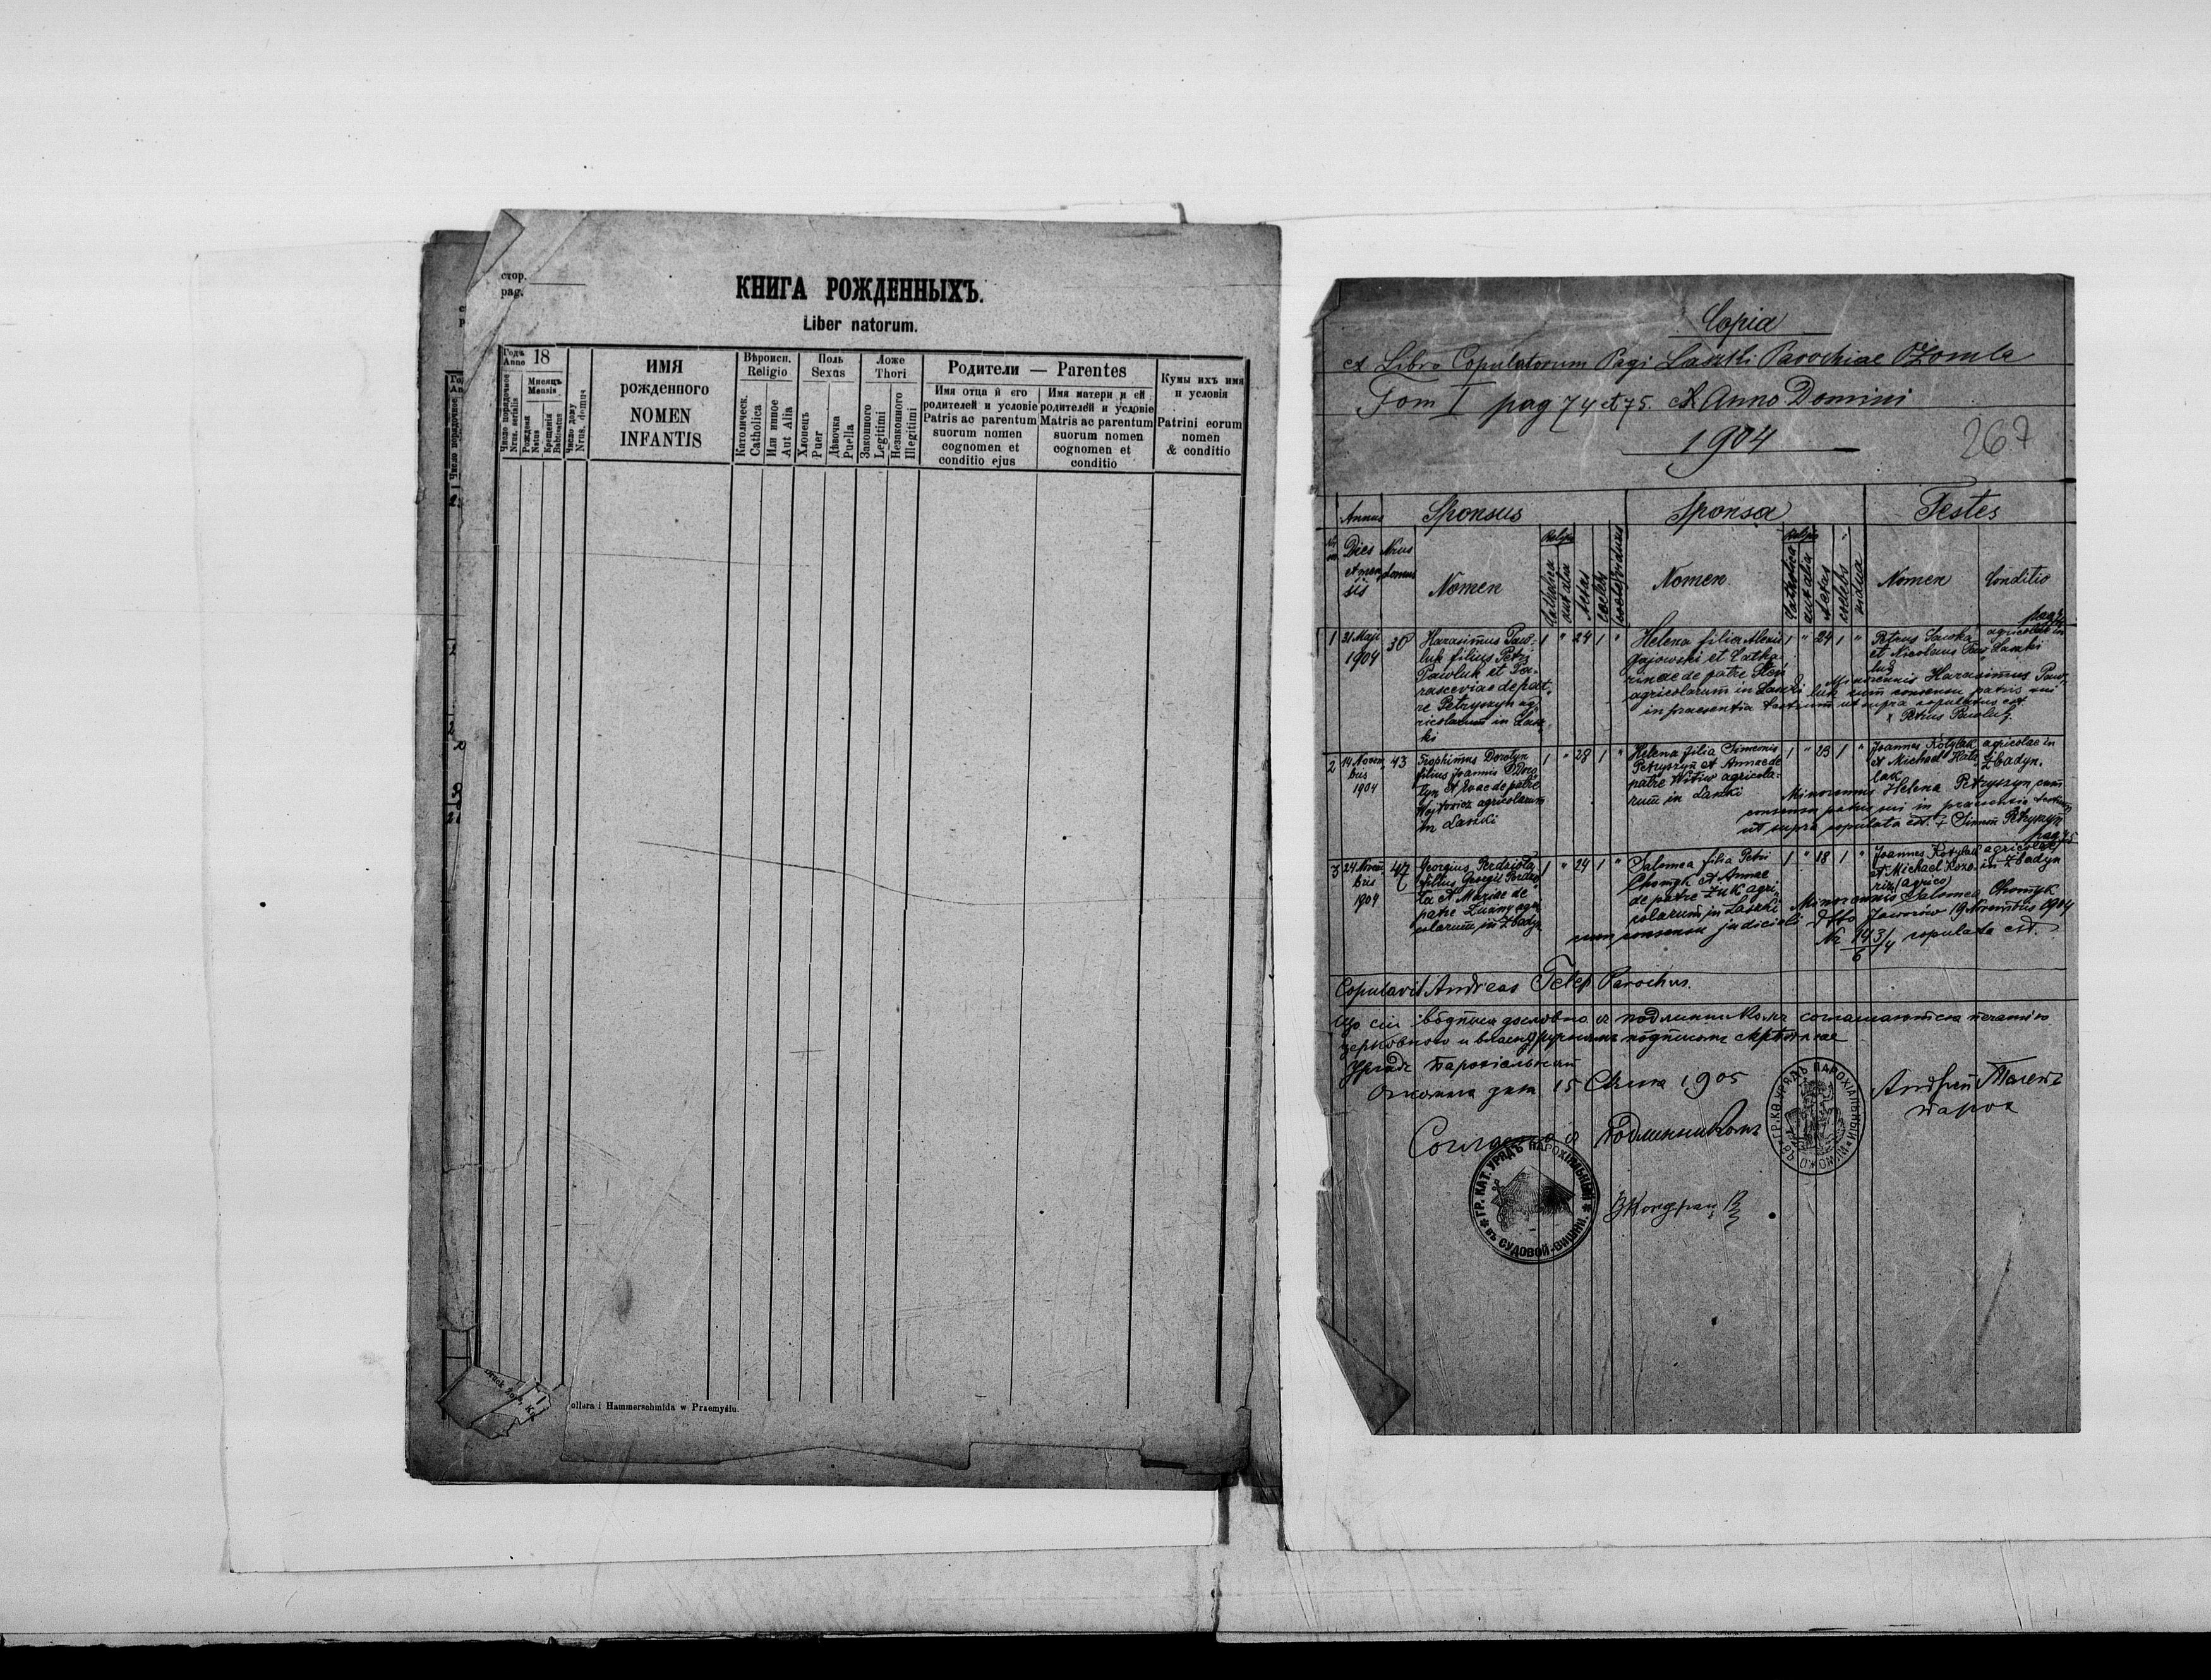 стор.
pag.
КНИГА РОЖДЕННЫХЪ.
Liber natorum.
Годъ
Anno 18
Число порядочное
Nrus. serialis
Мѣсяцъ
Mensis
Рожденя
Natus
Крещенія
Babtisatus
Число дому
Nrus. domus
ИМЯ
рожденного
NOMEN
INFANTIS
Вѣроисп.
Religio
Католическ.
Catholica
Или инное
Aut Alia
Поль
Sexus
Хлопецъ
Puer
Дѣвочка
Puella
Ложе
Thori
Законного
Legitimi
Незаконного
Illegitimi
Родители — Parentes
Имя отца и его
родителей и условіе
Patris ac parentum
suorum nomen
cognomen et
conditio ejus
Имя матери и ей
родителей и условіе
Matris ac parentum
suorum nomen
cognomen et
conditio
Кумы ихъ имя
и условія
Patrini eorum
nomen
& conditio
ollera i Hammerschmida w Przemyślu.
Copia
ex Libro Copulatorum Pagi Laszki Parochiae Ożomla
Tom I pag 74 et 75. Anno Domini
1904
267
Annus
Sponsus
Sponsa
Testes
Dies
et men
sis
Nrus
domus
Nomen
Catholica
aut alia
Aetas
Coelebs
Viduus
Nomen
Catholica
aut alia
Aetas
coelebs
vidua
Nomen
Conditio
1 21 Maji
1904
30
Harasimus Paw-
luk filius Petri
Pawluk et Pa-
rasceviae de pat-
re Petryszyn ag-
ricolarum in Lasz-
ki
1 " 24 1 "
Helena filia Alexii
Gajowski et Catha
rinae de patre
agricolarum in Laszki
1 " 24 1 "
Petrus Sawka
et Nicolaus
agricolae in
Laszki
Minorennis Harasimus Paw-
luk cum consensu patris sui
in praesentia testium ut supra copulatus est
Petrus Pawluk
2 14 Novem
bris
1904
43
Trophimus Dorotyn
filius Joannis Doro
tyn et Evae de patre
Wojtowicz agricolarum
in Laszki
1 " 28 1 "
Helena filia Simeonis
Petryszyn et Annae de
patre Witiw agricola-
rum in Laszki
1 " 23 1 "
Joannes Kotylak
et Michael
agricolae in
Zbadyn.
Minorennis Helena Petryszyn cum
consensu patris sui in praesentia testium
ut supra copulata est. + Simeon Petryszyn
pag 75
3 24 Novem
bris
1904
47
Georgius
filius Georgii
et Mariae de
patre agri
colarum in Zbadyn
1 " 24 1 "
Salomea filia Petri
Chomyk et Annae
de patre Żuk agri-
colarum in Laszki
1 " 18 1 "
Joannes Kotylak
et Michael
agricolae
in Zbadyn
Minorennis Salomea Chomyk
cum consensu judiciali ddto Jaworów 19 Novembris 1904
Nr 143/4
6
copulata est.
Copulavit Andreas Telep Parochus.
Що сіи вôдписи дословно съ подлинникомъ соглашаются печатію
церковною и власноручнымъ пôдписомъ
Урядъ Парохіальный
дня 15 Січня 1905
Андрей Телепъ
парох
Согласно съ Подлинникомъ
ГР. КА. УРЯДЪ ПАРОХІАЛЬНЫЙ
ВЪ ОЖОМЛИ
ГР. КАТ. УРЯДЪ ПАРОХІЯЛЬНЫЙ
ВЪ СУДОВОЙ-ВИШНИ.